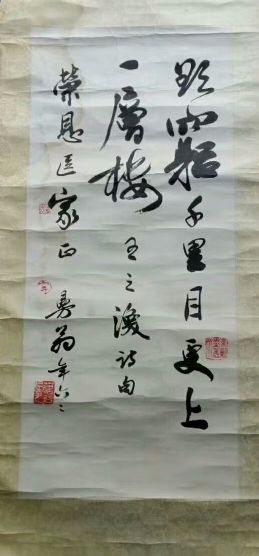 欲窮千里目更上
一層樓 王之渙詩句
榮恩医家正 易翁年六二